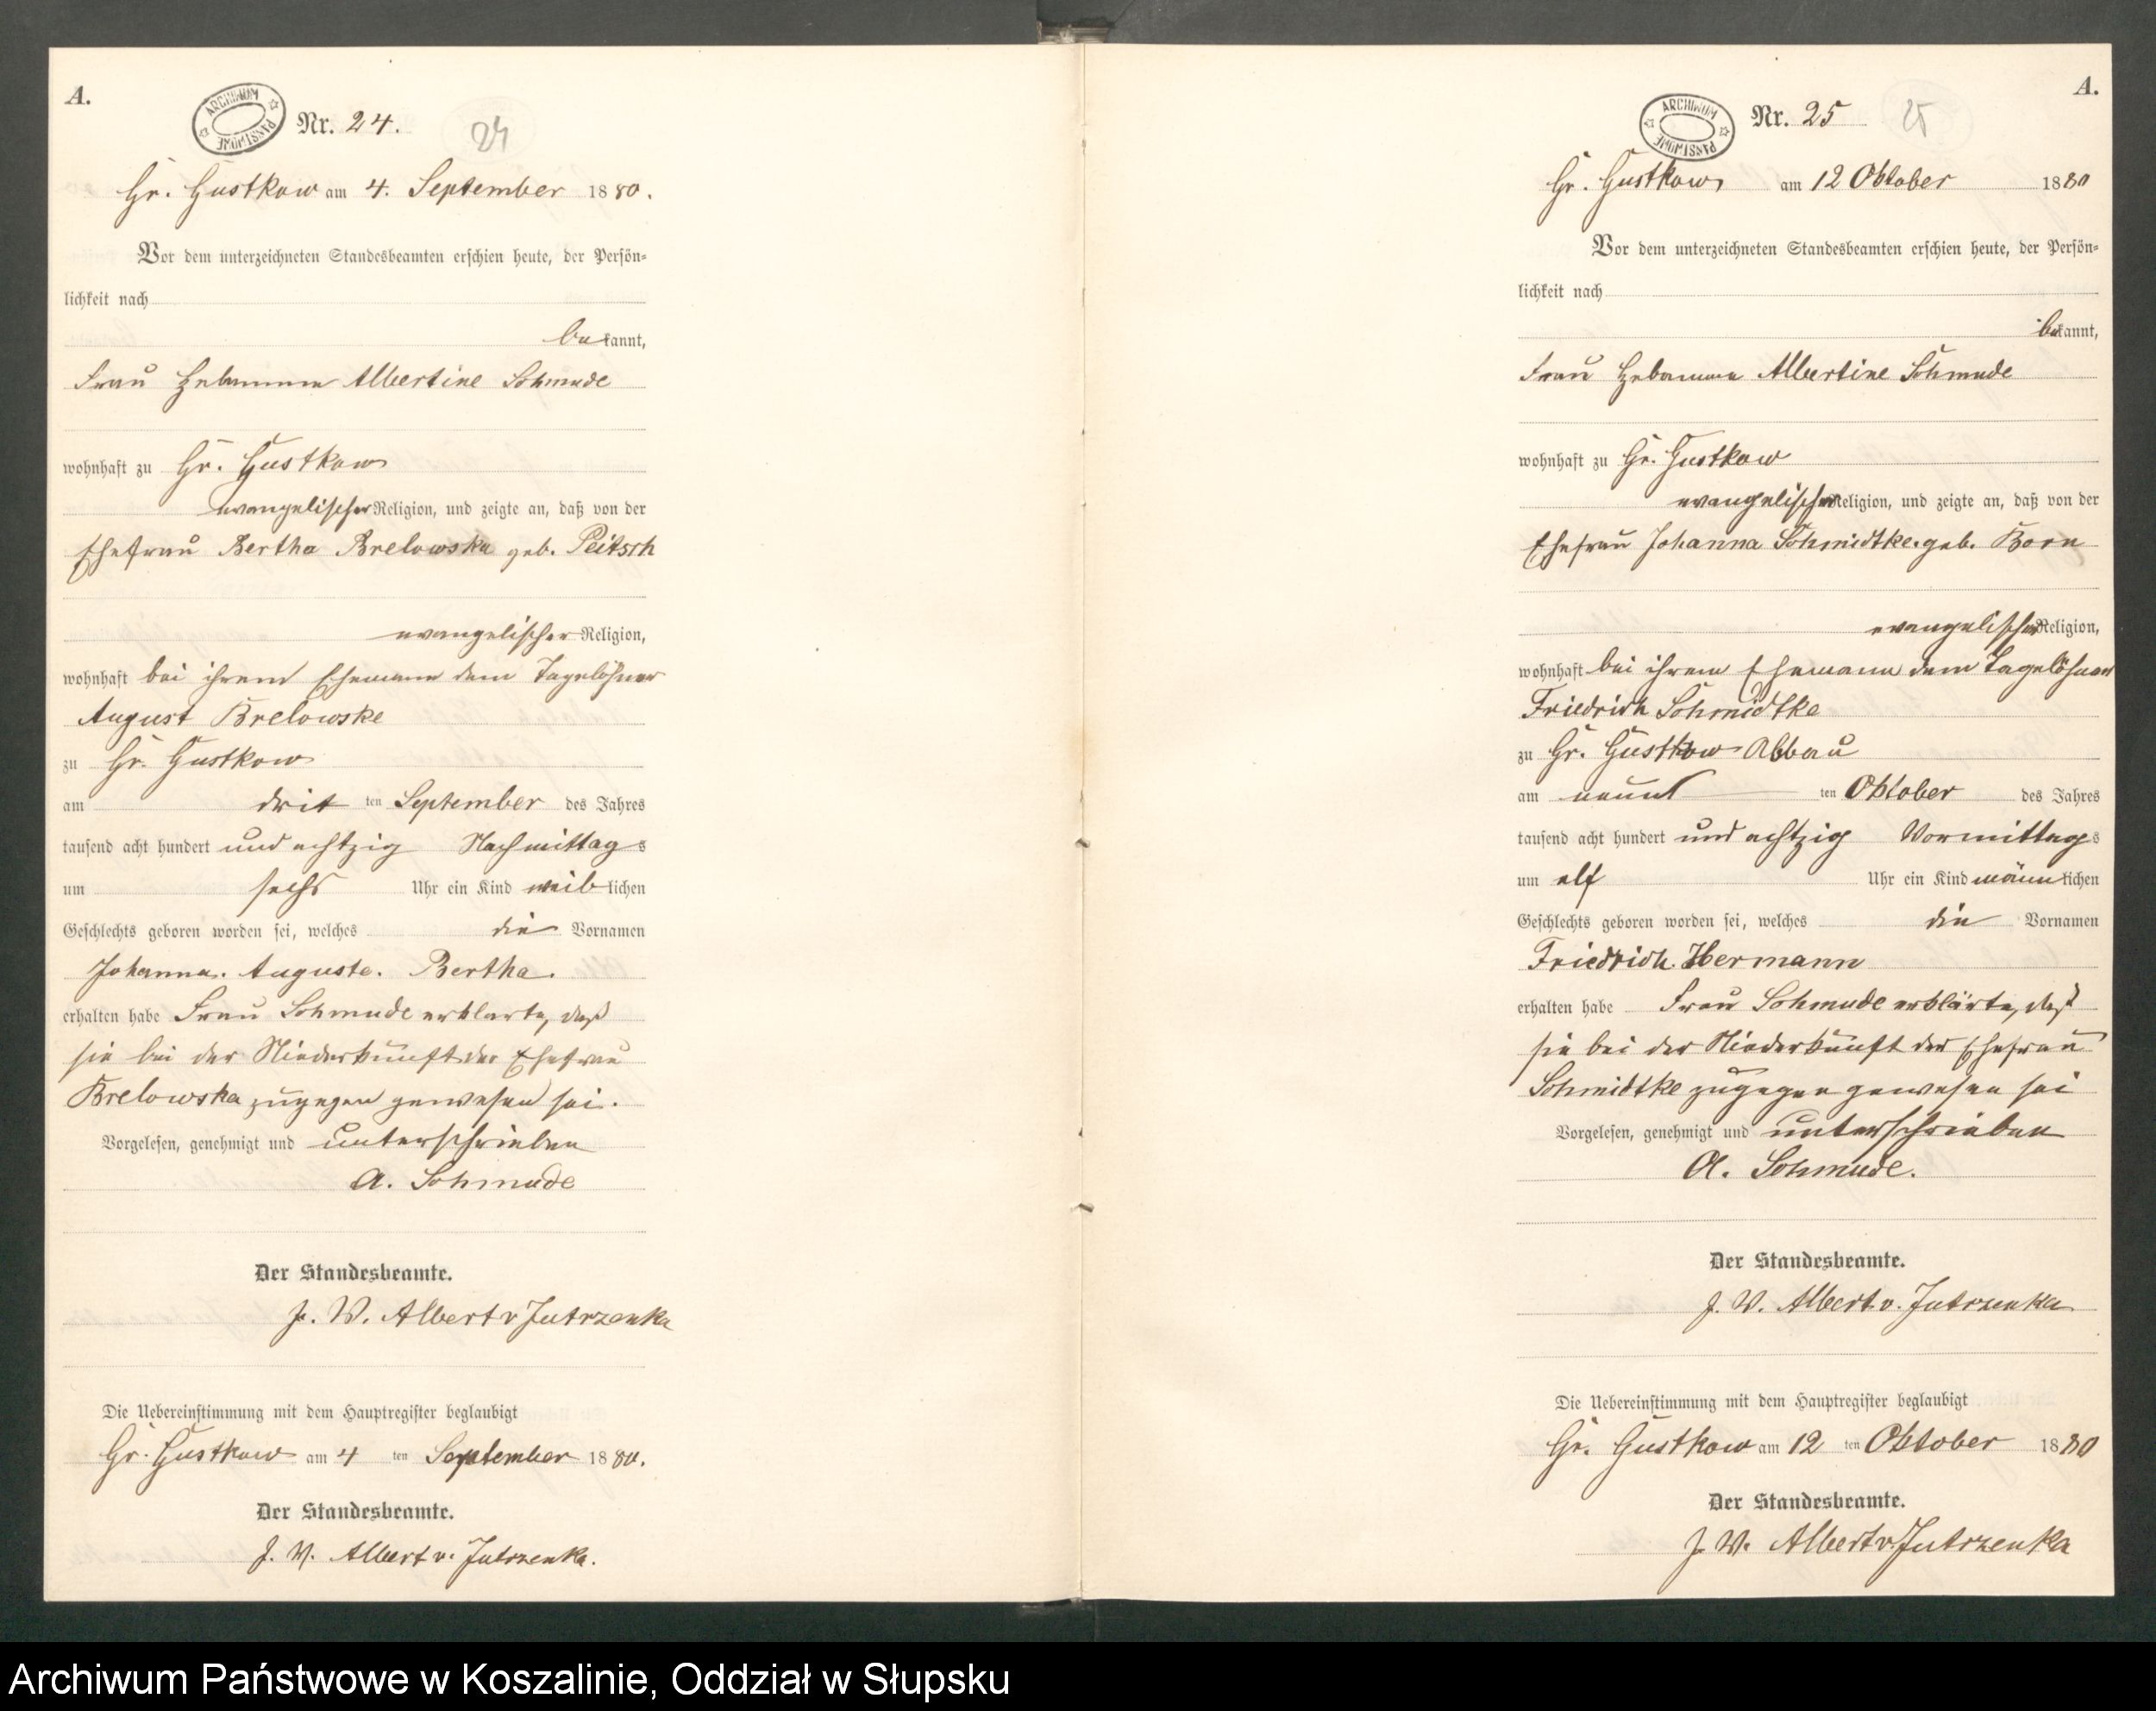 A.
ARCHIWUM PAŃSTWOWE
Nr. 24.
24
Gr. Gustkow am 4. September 1880.
Vor dem unterzeichneten Standesbeamten erschien heute, der Persön-
lichkeit nach
bekannt,
Frau Hebamme Albertine Schmude
wohnhaft zu Gr. Gustkow
evangelischer Religion, und zeigte an, daß von der
Ehefrau Bertha Brelowska geb. Peitsch
evangelischer Religion,
wohnhaft bei ihrem Ehemann dem Tagelöhner
August Brelowske
zu Gr. Gustkow
am dritten September des Jahres
tausend acht hundert und achtzig Nachmittags
um sechs Uhr ein Kind weiblichen
Geschlechts geboren worden sei, welches die Vornamen
Johanna. Auguste. Bertha.
erhalten habe Frau Schmude erklarte, daß
sie bei der Niederkunft der Ehefrau
Brelowska zugegen gewesen sei.
Vorgelesen, genehmigt und unterschrieben
A. Schmude
Der Standesbeamte.
J. W. Albert v Jutrzenka
Die Uebereinstimmung mit dem Hauptregister beglaubigt
Gr. Gustkow am 4 ten September 1880.
Der Standesbeamte.
J. W. Albert v. Jutrzenka.
A.
ARCHIWUM PAŃSTWOWE
Nr. 25
25
Gr. Gustkow am 12 Oktober 1880
Vor dem unterzeichneten Standesbeamten erschien heute, der Persön-
lichkeit nach
bekannt,
Frau Hebamme Albertine Schmude
wohnhaft zu Gr. Gustkow
evangelischer Religion, und zeigte an, daß von der
Ehefrau Johanna Schmidtke geb. Born
evangelischer Religion,
wohnhaft bei ihrem Ehemann dem Tagelöhner
Friedrich Schmidtke
zu Gr. Gustkow Abbau
am neunten Oktober des Jahres
tausend acht hundert und achtzig Vormittags
um elf Uhr ein Kind männlichen
Geschlechts geboren worden sei, welches die Vornamen
Friedrich. Hermann
erhalten habe Frau Schmude erklärte, daß
sie bei der Niederkunft der Ehefrau
Schmidtke zugegen gewesen sei
Vorgelesen, genehmigt und unterschrieben
A. Schmude.
Der Standesbeamte.
J. W. Albert v. Jutrzenka
Die Uebereinstimmung mit dem Hauptregister beglaubigt
Gr. Gustkow am 12 ten Oktober 1880
Der Standesbeamte.
J. W. Albert v. Jutrzenka
Archiwum Państwowe w Koszalinie, Oddział w Słupsku